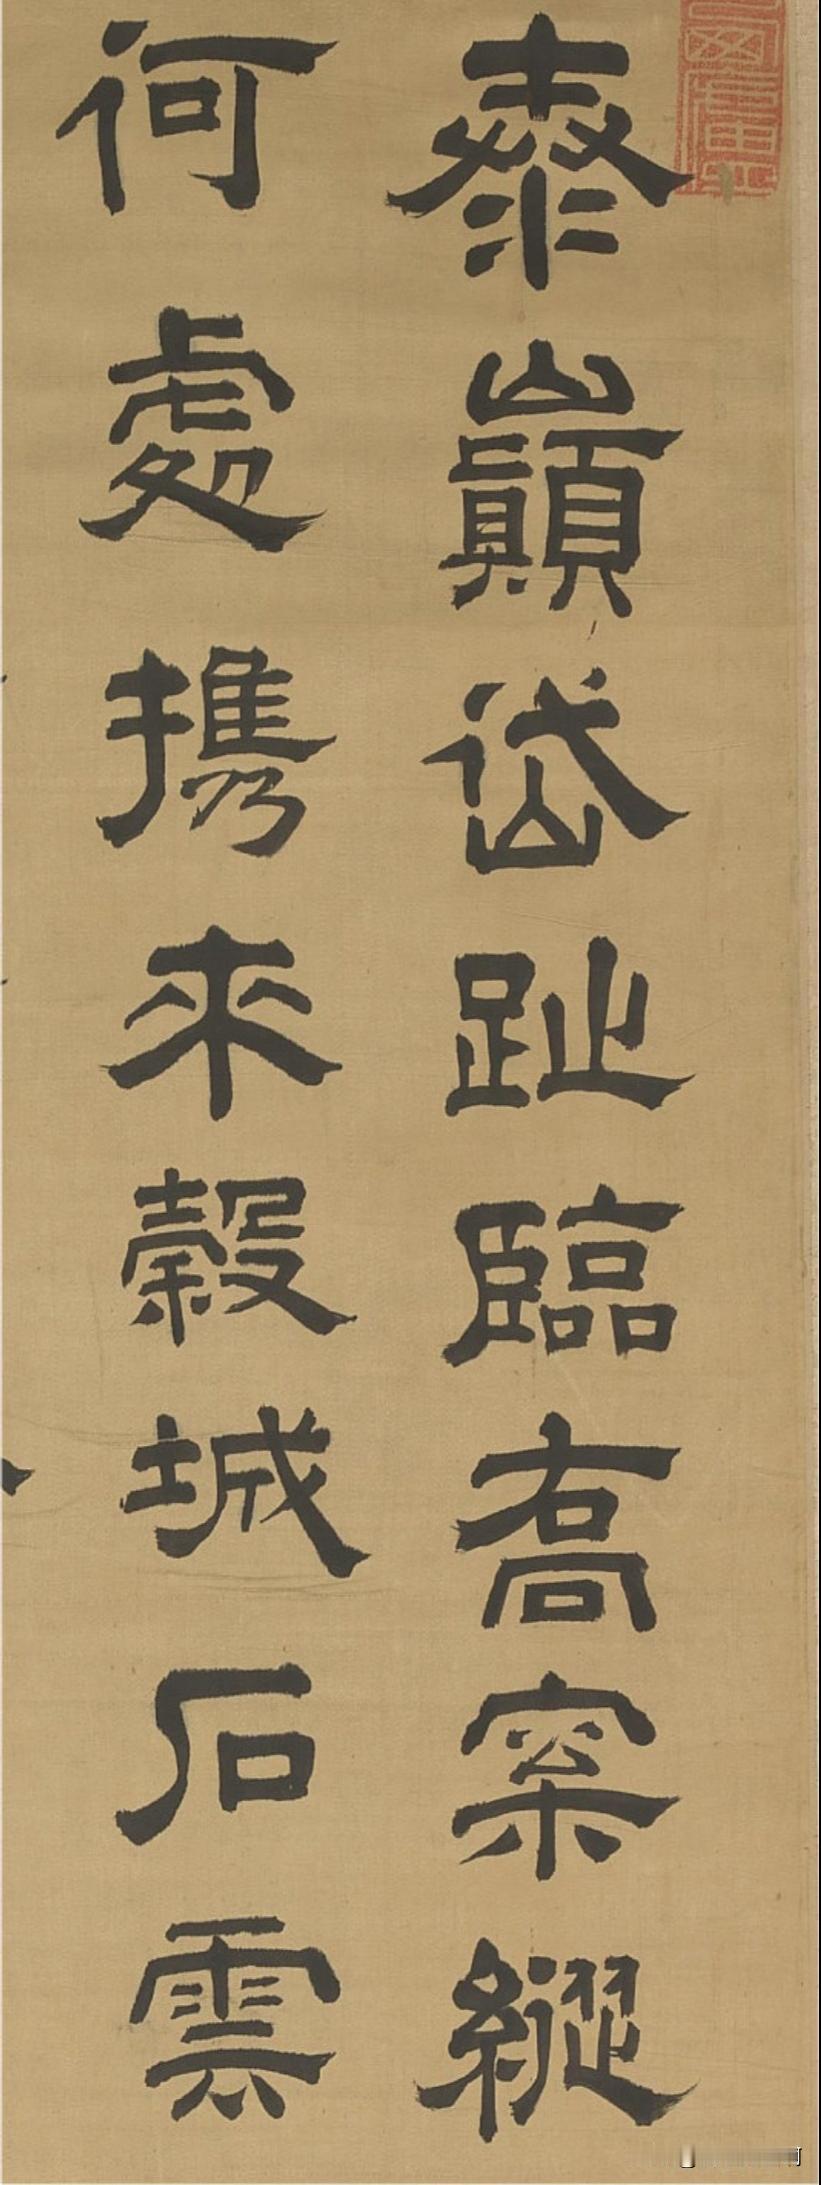 泰巔岱趾臨高案縱
何處携來穀城石雲